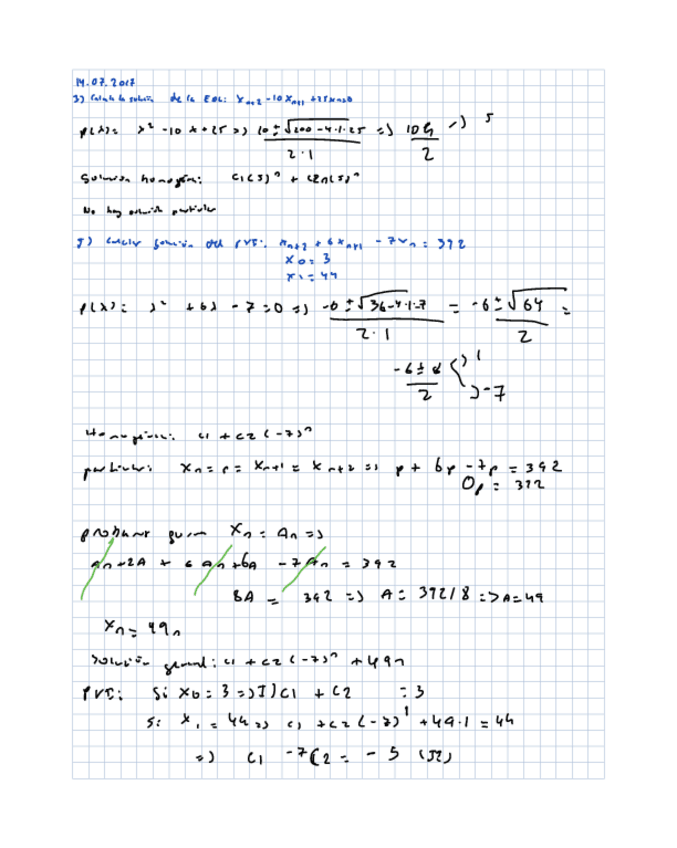 14.07.2017
3) Calcula la solución de la EDL: Xn+2 -10Xn+1 +25xn=0
p(λ)= λ² -10 λ +25 => 10 ± √200-4·1·25 / 2·1 => 10 / 2 => 5
Solución homogénea: c1(5)ⁿ + c2n(5)ⁿ
No hay solución particular
5) Calcular solución del PVI: xn+2 + 6xn+1 - 7xn = 392
x0 = 3
x1 = 44
p(λ)= λ² + 6λ - 7 = 0 => -6 ± √36-4·1·7 / 2·1 = -6 ± √64 / 2 =
-6 ± 8 / 2 1 -7
Homogénea: c1 + c2 (-7)ⁿ
particular: xn = p = xn+1 = xn+2 => p + 6p - 7p = 392
0p = 392
probamos Xn = An =>
An+2A + 6An+6A -7An = 392
8A = 392 => A = 392/8 => A=49
Xn = 49n
Solución general: c1 + c2 (-7)ⁿ + 49n
PVI: Si x0 = 3 => I) c1 + c2 = 3
Si x1 = 44 => c1 + c2 (-7)¹ + 49·1 = 44
=> c1 - 7c2 = - 5 (II)